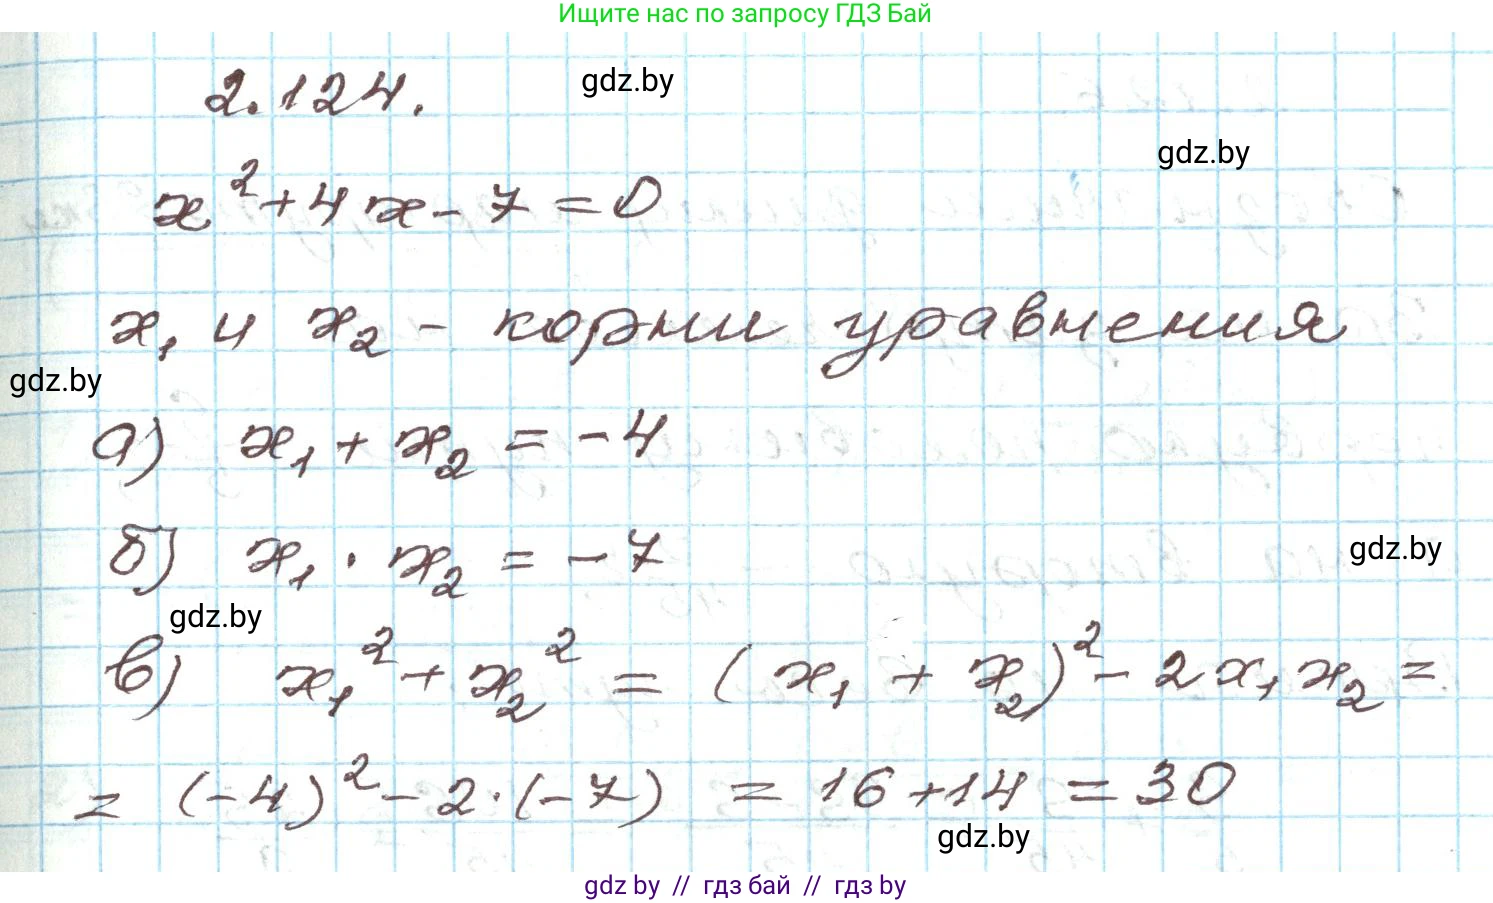 Ищите нас по запросу ГДЗ Бай
2.124.
gdz.by
gdz.by
x² + 4x - 7 = 0
x₁ и x₂ - корни уравнения
gdz.by
а) x₁ + x₂ = -4
б) x₁ · x₂ = -7
gdz.by
gdz.by
в) x₁² + x₂² = (x₁ + x₂)² - 2x₁x₂ =
= (-4)² - 2·(-7) = 16 + 14 = 30
gdz.by
gdz by // гдз бай // гдз by